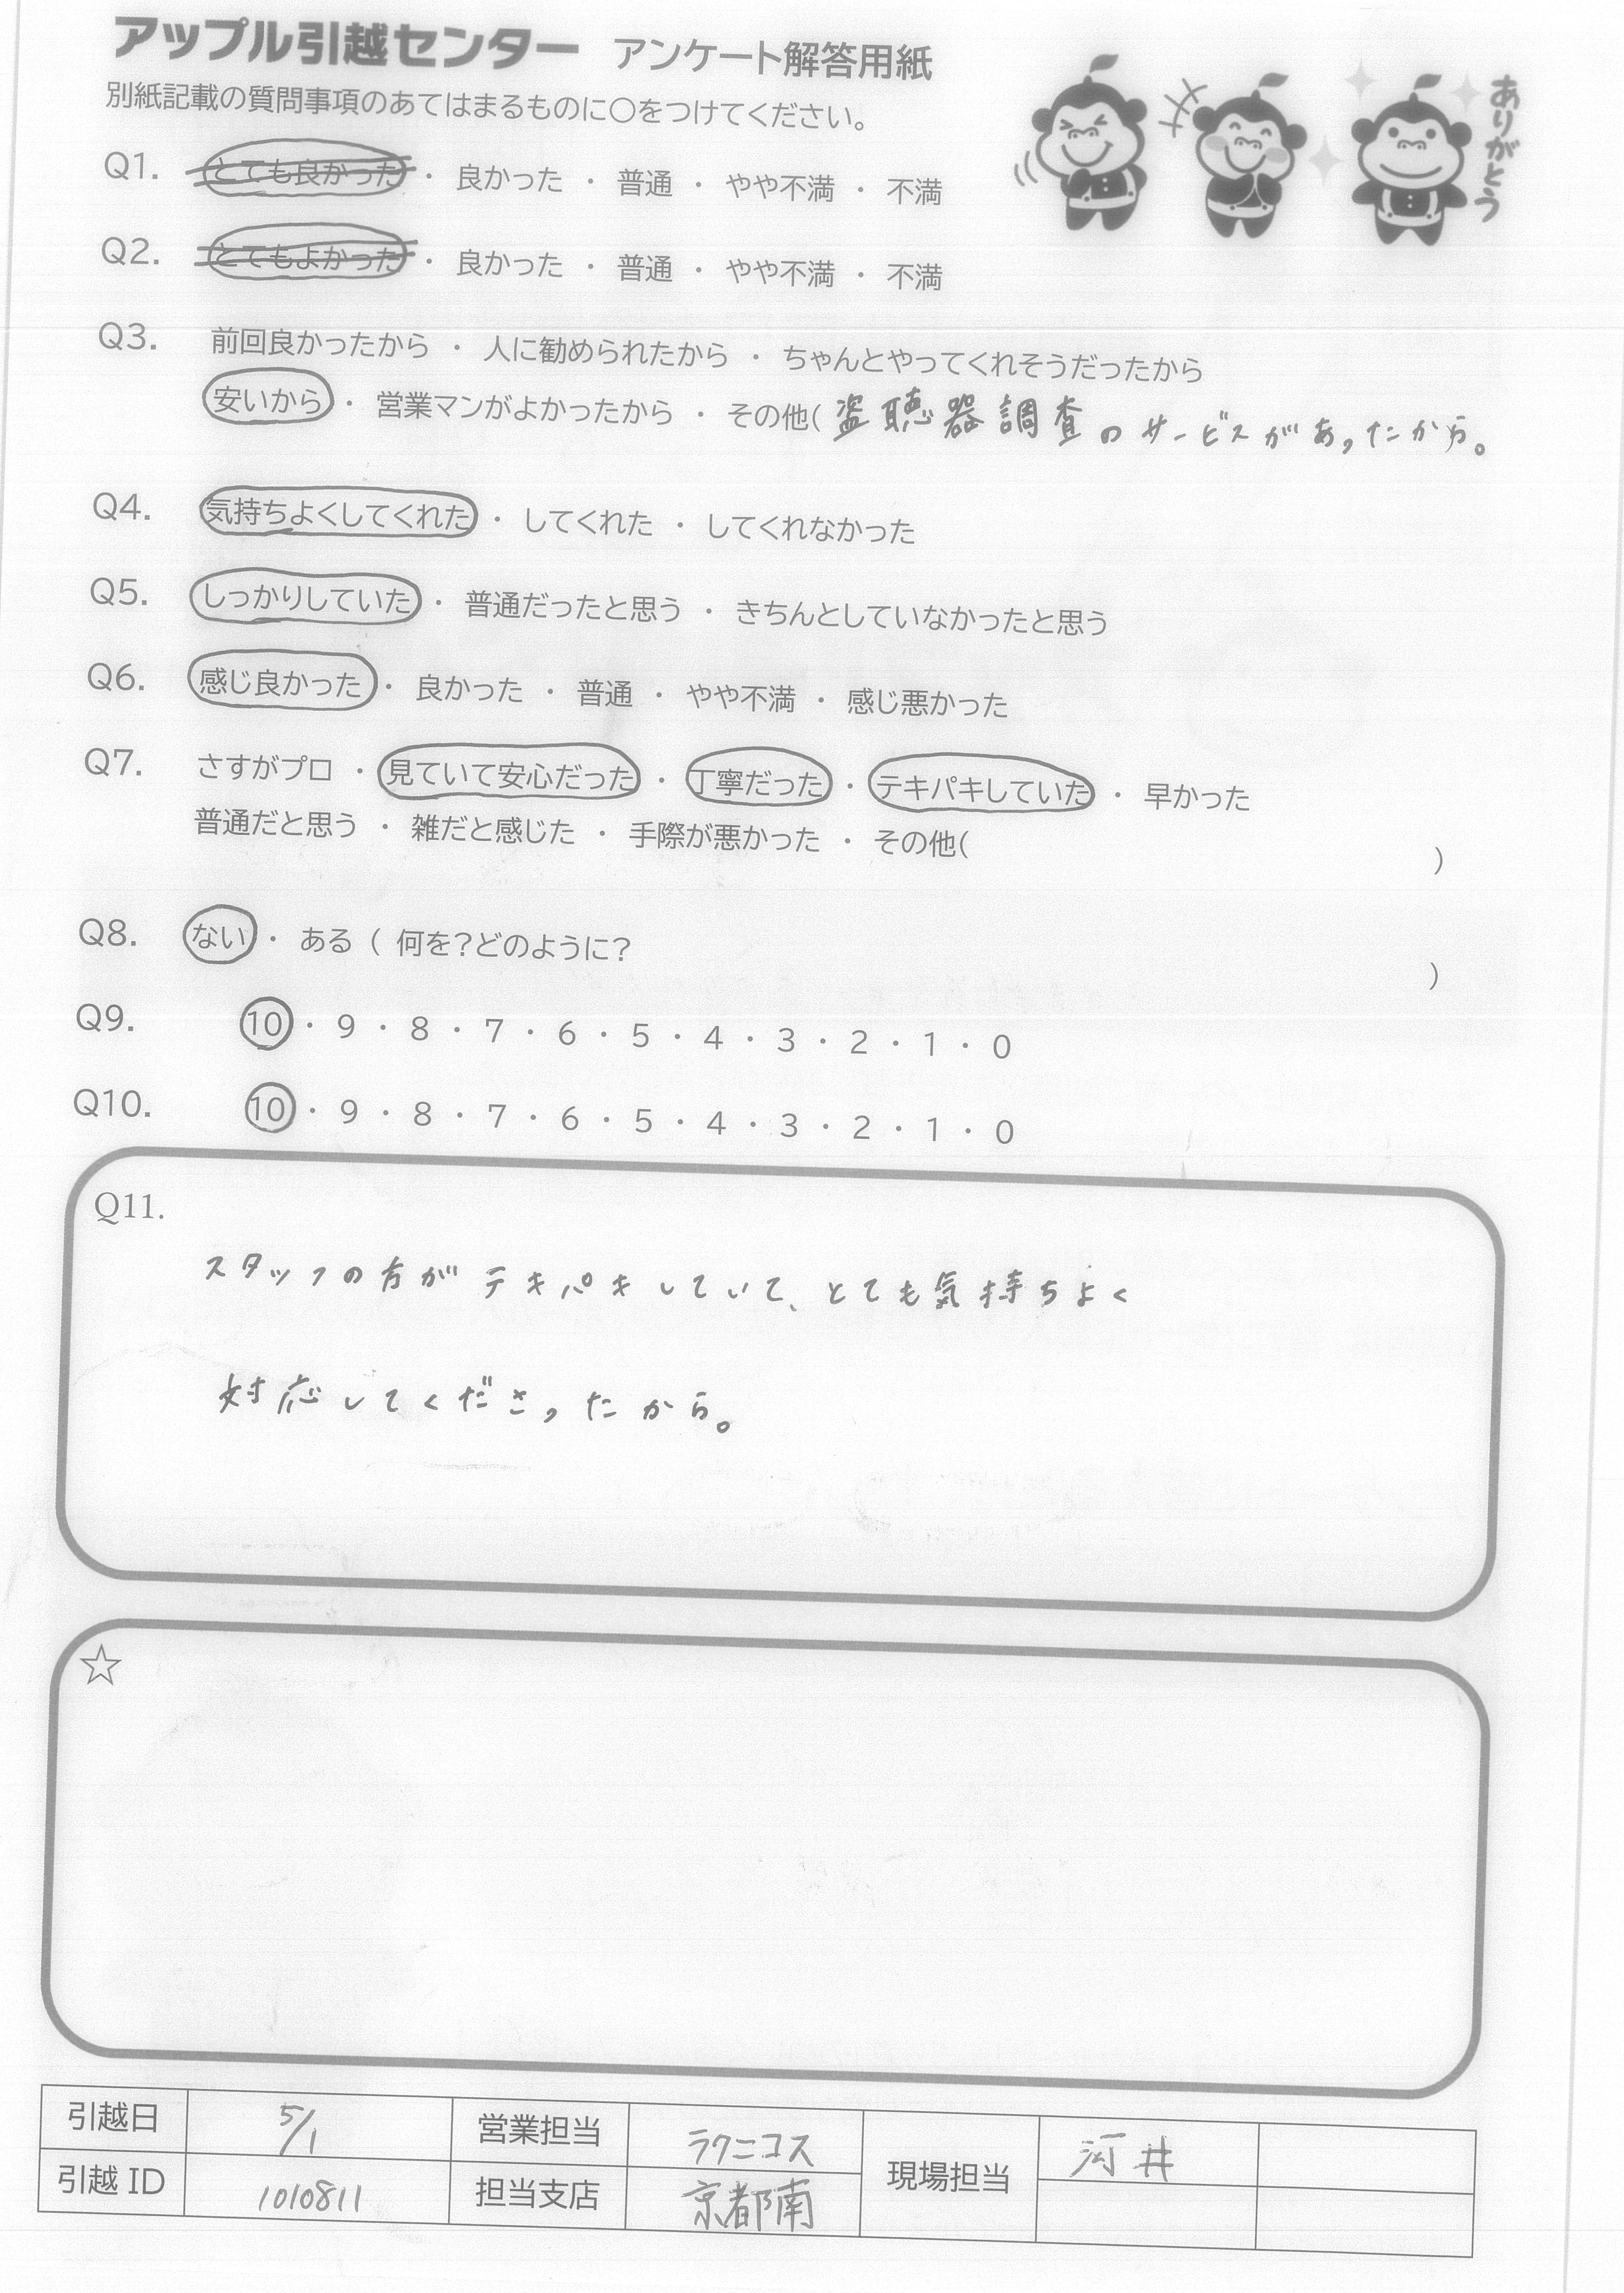 アップル引越センター アンケート解答用紙
別紙記載の質問事項のあてはまるものに〇をつけてください。
ありがとう
Q1. とても良かった ・ 良かった ・ 普通 ・ やや不満 ・ 不満
Q2. とてもよかった ・ 良かった ・ 普通 ・ やや不満 ・ 不満
Q3. 前回良かったから ・ 人に勧められたから ・ ちゃんとやってくれそうだったから
安いから ・ 営業マンがよかったから ・ その他( 盗聴器調査のサービスがあったから。
Q4. 気持ちよくしてくれた ・ してくれた ・ してくれなかった
Q5. しっかりしていた ・ 普通だったと思う ・ きちんとしていなかったと思う
Q6. 感じ良かった ・ 良かった ・ 普通 ・ やや不満 ・ 感じ悪かった
Q7. さすがプロ ・ 見ていて安心だった ・ 丁寧だった ・ テキパキしていた ・ 早かった
普通だと思う ・ 雑だと感じた ・ 手際が悪かった ・ その他( )
Q8. ない ・ ある ( 何を?どのように? )
Q9. 10 ・ 9 ・ 8 ・ 7 ・ 6 ・ 5 ・ 4 ・ 3 ・ 2 ・ 1 ・ 0
Q10. 10 ・ 9 ・ 8 ・ 7 ・ 6 ・ 5 ・ 4 ・ 3 ・ 2 ・ 1 ・ 0
Q11.
スタッフの方がテキパキしていて、とても気持ちよく
対応してくださったから。
☆
引越日 5/1 営業担当 ラクニコス 現場担当 河井
引越 ID 1010811 担当支店 京都南